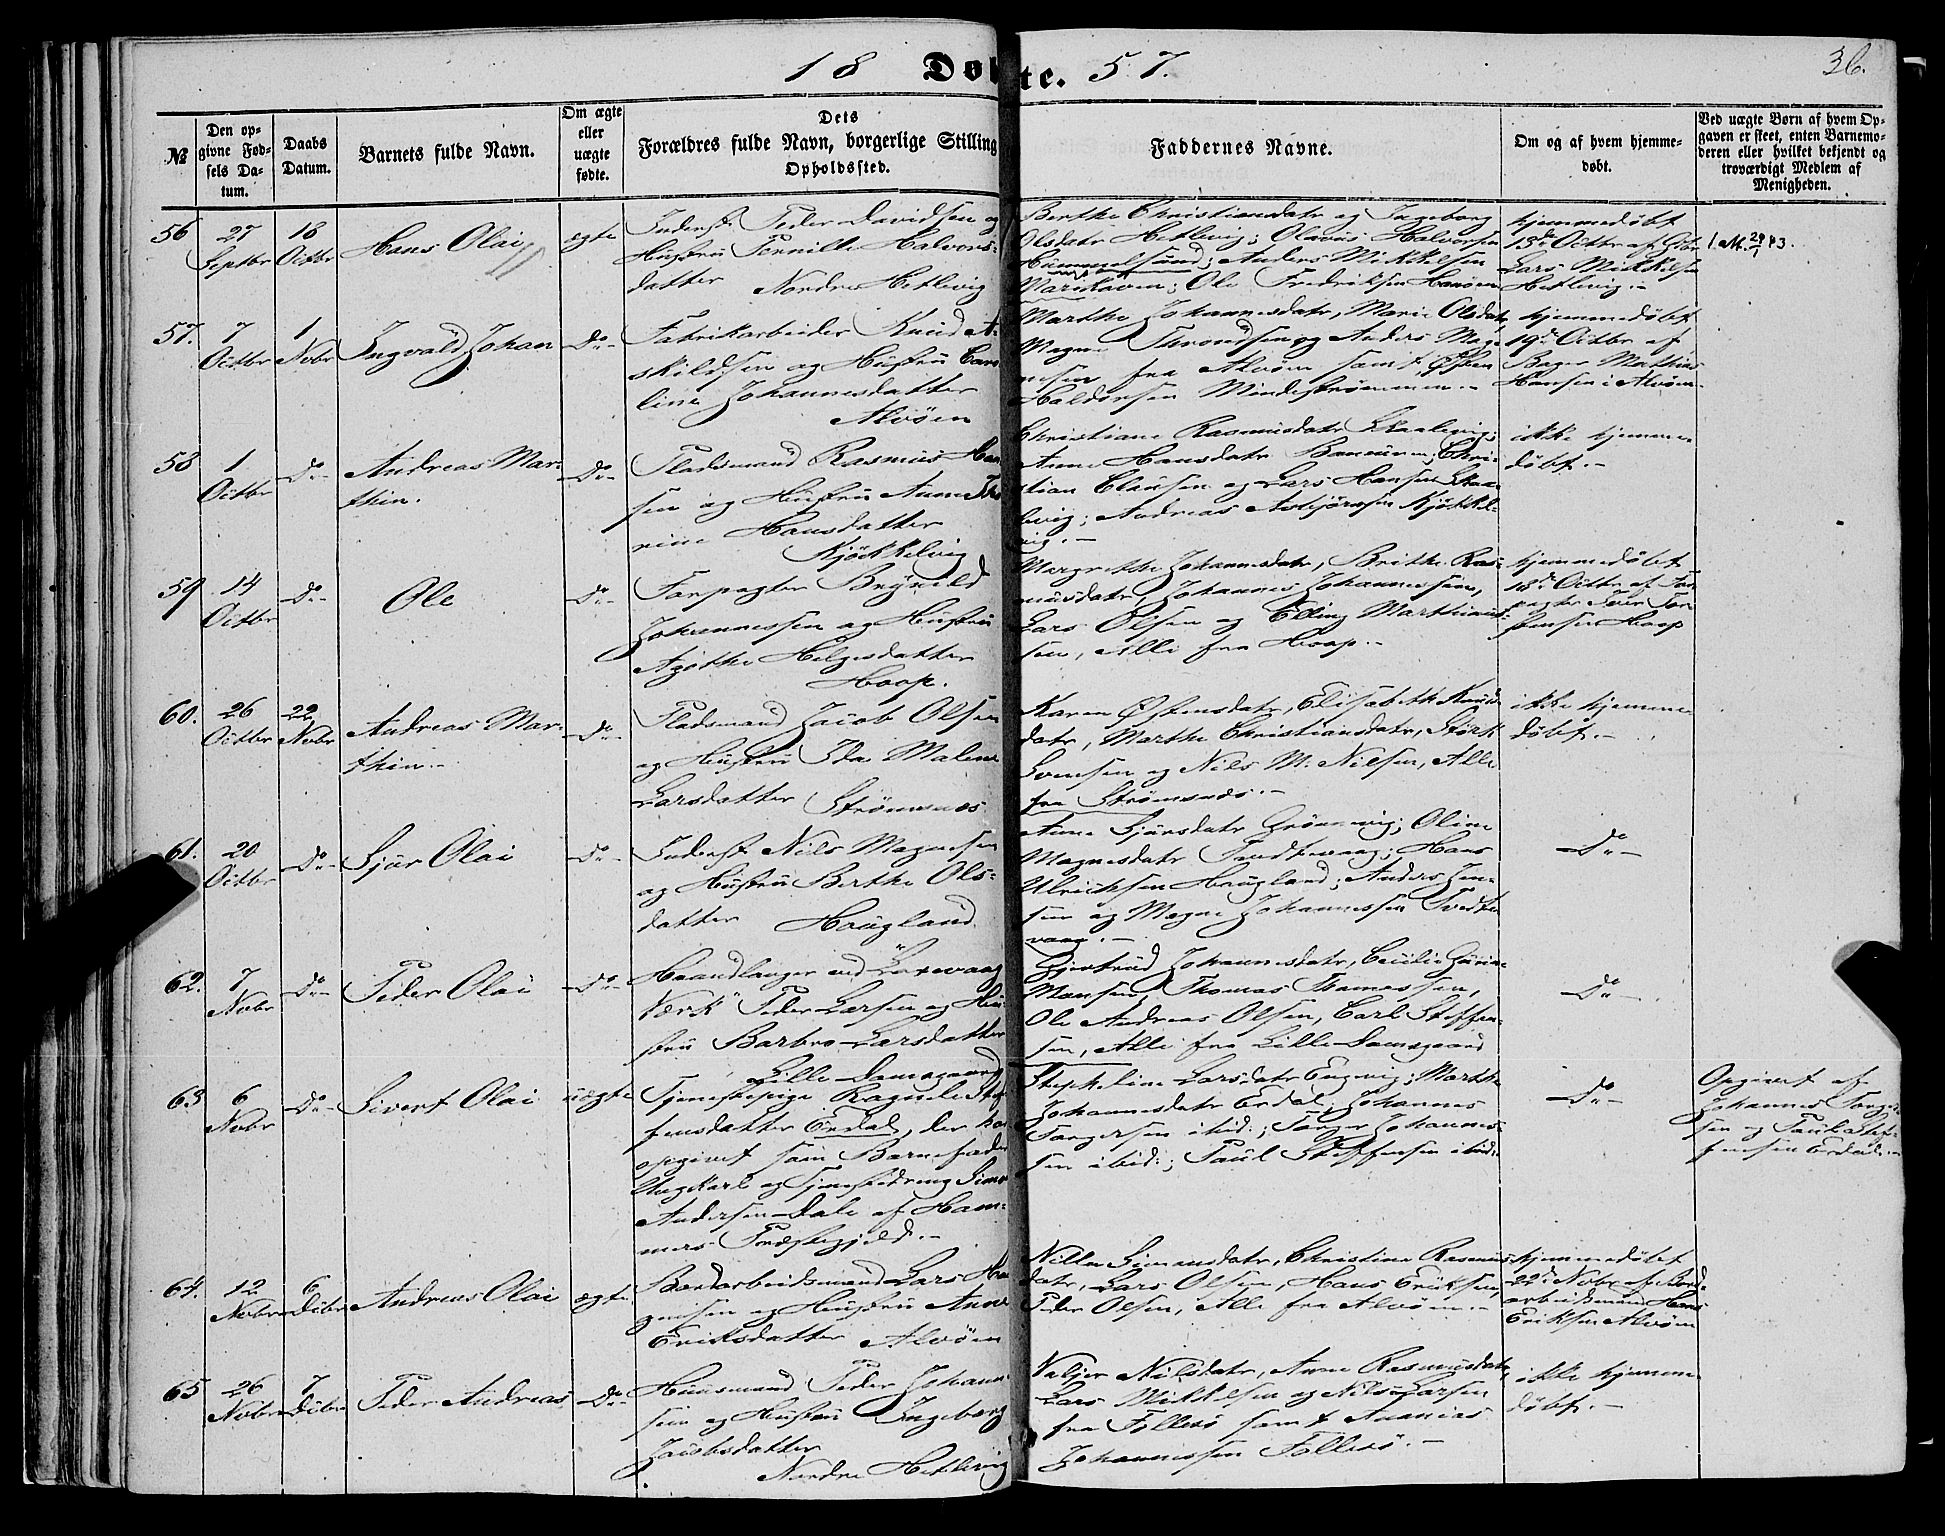 18 Døbte. 57.
36.
№
Den opgivne Fødsels Datum.
Daabs Datum.
Barnets fulde Navn.
Om ægte eller uægte fødte.
Dets Forældres fulde Navn, borgerlige Stilling
Opholdssted.
Faddernes Navne.
Om og af hvem hjemmedøbt.
Ved uægte Børn af hvem Opgaven er skeet, enten Barnemoderen eller hvilket bekjendt og troværdigt Medlem af Menigheden.
56
27 Septbr
18 Octbr
Hans Olai
ægte
Inderst Peder Davidsen og
Hustru Pernille Halvors-
datter Nordre Hetlevig
Berthe Christiansdatr og Ingeborg
Olsdatr Hetlevig; Olavus Halvorsen
Hummelsund; Anders Mikkelsen
Marikoven; Ole Fredriksen Hanøen
hjemmedøbt
13de Octbr af
Lars Mikkelsen
Hetlevig.-
57.
7 Octbr
1 Nobr
Ingvald Johan
Do-
Fabrikarbeider Knud A-
skildsen og Hustru Caro
line Johannesdatter
Alvøen
Marthe Johannesdatr, Marie Olsdatr,
Magne Throndsen og Anders Mag-
nesen fra Alvøen samt Østen
Haldorsen Mindestrømmen.-
hjemmedøbt
19de Octbr af
Bager Mathias
Hansen i Alvøen
58
1 Octbr
Do-
Andreas Mar-
thin.
Do-
Pladsmand Rasmus Han
sen og Hustru Anne
rine Hansdatter
Kjøkkelvig
Christiane Rasmusdatr Skaalevig;
Anne Hansdatr; Chri-
stian Clausen og Lars Hansen Skaa-
levig; Andreas Asbjørnsen Kjøkkel-
vig.-
ikke hjemme-
døbt.-
59
14 Octbr
Do-
Ole
Do-
Forpagter Brynild
Johannessen og Hustru
Agathe Helgesdatter
Haap.
Margrethe Johannesdatr, Brithe Ras-
musdatr, Johannes Johannessen,
Lars Olsen og Elling Marthinus-
sen, Alle fra Haap.-
hjemmedøbt
18de Octbr af For-
pagter Iver
Haap
60.
26 Octbr
22 Nobr
Andreas Mar-
thin.-
Do-
Pladsmand Jacob Olsen
og Hustru Ida Malene
Larsdatter Strømsnes
Karen Østensdatr, Elisabeth Knuds
datr, Marthe Christiansdatr, Størk
Svensen og Nils M. Nilsen, Alle
fra Strømsnes.-
ikke hjemme-
døbt.-
61.
20 Octbr
Do-
Sjur Olai
Do-
Inderst Nils Magnesen
og Hustru Berthe Ols-
datter Haugland
Anne Sjursdatr Grønnevig; Oline
Magnesdatr Tvedtevaag; Hans
Ulrichsen Haugland; Anders Jen-
sen og Magne Johannessen Tvedte
vaag.-
Do-
62.
7 Nobr
Do-
Peder Olai
Do-
Haandlanger ved "Laxevaag
Værk" Peder Larsen og Hu-
stru Barbro Larsdatter
Lille Damsgaard
Gjertrud Johannesdatr, Cecilie
Monsen, Thomas Thomassen,
Ole Andreas Olsen, Carl Steffen-
sen, Alle fra Lille Damsgaard
Do-
63
6 Nobr
Do-
Sivert Olai
uægte
Tjenestepige Ragnele Stef
fensdatter Erdal, der har
opgivet som Barnefader
Ungkarl og Tjenestedreng Simon
Andersen Dale af Ham-
mers Præstegjeld.-
Stepheline Larsdatr Engevig; Marthe
Johannesdatr Erdal; Johannes
Torgersen ibid:; Torger Johannes-
sen ibid:; Paul Steffensen ibid:
Do-
Opgivet af
Johannes Torger-
sen og Paul Stef-
fensen Erdal.-
64.
12 Nobr
6 Debr
Andreas Olai
ægte
Bordarbeidsmand Lars Ha
gensen og Hustru Anne
Eriksdatter Alvøen
Nille Simonsdatr, Christine Rasmus-
datr, Lars Olsen, Hans Eriksen,
Peder Olsen, Alle fra Alvøen.-
hjemmedøbt
22de Nobr af Bord-
arbeidsmand Hans
Eriksen Alvøen
65
26 Nobr
7 Debr
Peder Andreas
Do-
Huusmand Peder Johann
sen og Hustru Ingeborg
Jacobsdatter
Nordre Hetlevig
Valjer Nilsdatr, Anne Rasmusdatr,
Lars Mikkelsen og Nils Larsen
fra Follesø samt Ananias
Johannessen Follesø.-
ikke hjemme-
døbt.-